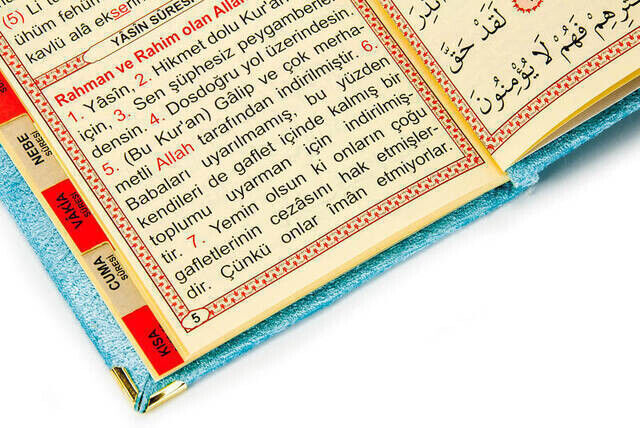 (5) Li te
ühüm fehüm
kavlü alâ ekseri
YÂSİN SÛRESİ
Rahman ve Rahim olan Allah
1. Yâsîn, 2. Hikmet dolu Kur'an
için, 3. Sen şüphesiz peygamberler
densin. 4. Dosdoğru yol üzerindesin.
5. (Bu Kur'an) Gâlip ve çok merha-
metli Allah tarafından indirilmiştir. 6.
Babaları uyarılmamış, bu yüzden
kendileri de gaflet içinde kalmış bir
toplumu uyarman için indirilmiş-
tir. 7. Yemin olsun ki onların çoğu
gafletlerinin cezâsını hak etmişler-
dir. Çünkü onlar imân etmiyorlar.
5
NEBE
SÛRESİ
VÂKIA
SÛRESİ
CUMA
SÛRESİ
KISA
لَقَدْ حَقَّ
فَهُمْ لَا يُؤْمِنُونَ